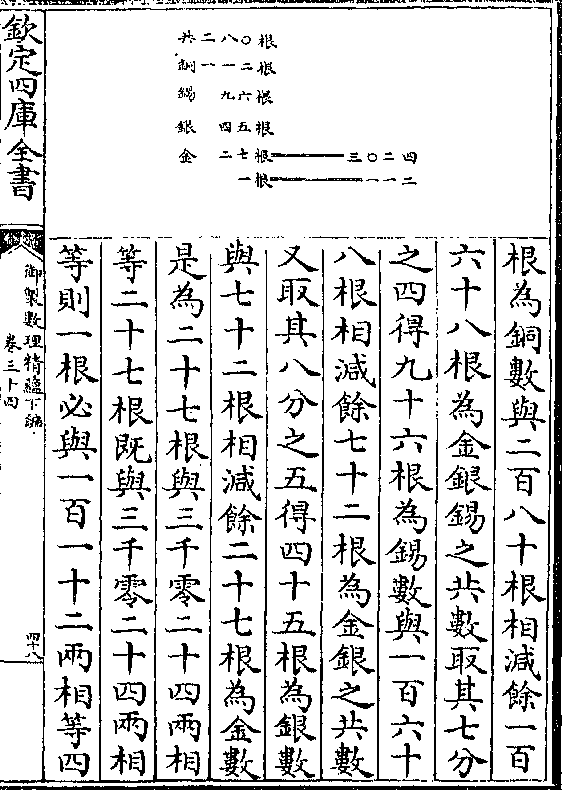 欽定四庫全書
御製數理精蘊下編
卷三十四
四十八
共二八〇根
銅一一二根
錫九六根
銀四五根
金二七根三〇二四
一根一一二
根為銅數與二百八十根相減餘一百
六十八根為金銀錫之共數取其七分
之四得九十六根為錫數與一百六十
八根相減餘七十二根為金銀之共數
又取其八分之五得四十五根為銀數
與七十二根相減餘二十七根為金數
是為二十七根與三千零二十四兩相
等二十七根既與三千零二十四兩相
等則一根必與一百一十二兩相等四